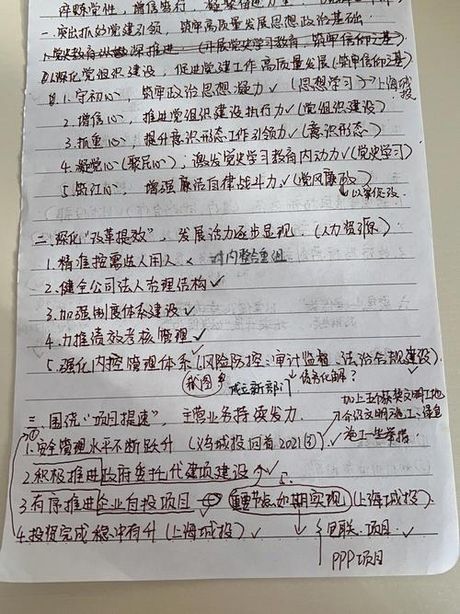 一.突出抓好党建引领，筑牢高质量发展思想政治基础
1.党史教育纵深推进（开展党史学习教育，筑牢信仰之基）
深化党组织建设，促进党建工作高质量发展（筑牢信仰之基）
1.守初心，筑牢政治思想凝力✓（思想学习）→上海城投
2.增信心，推进党组织建设执行力✓（党组织建设）
3.抓重心，提升意识形态工作引领力✓（意识形态）
4.凝党心（聚民心），激发党史学习教育内动力✓（党史学习）
5.铸红心，增强廉洁自律战斗力✓（党风廉政）
以案促改
二.深化“改革提效”，发展活力逐步显现（人力资源）
1.精准按需选人用人 对内整合重组
2.健全公司法人治理结构✓
3.加强制度体系建设✓
4.力推绩效考核管理✓
5.强化内控管理体系（风险防控：审计监督、法治合规建设）
成立新部门 债务化解？
三.围绕“项目提速”，主营业务持续发力
加上五个标英文明工地
1.安全管理水平不断跃升（义乌城投回首2021(3)）✓
2.积极推进政府委托代建项建设
3.有序推进企业自投项目 重要节点如期实现（上海城投）
4.投资完成稳中有升（上海城投）✓
项目 ✓
PPP项目